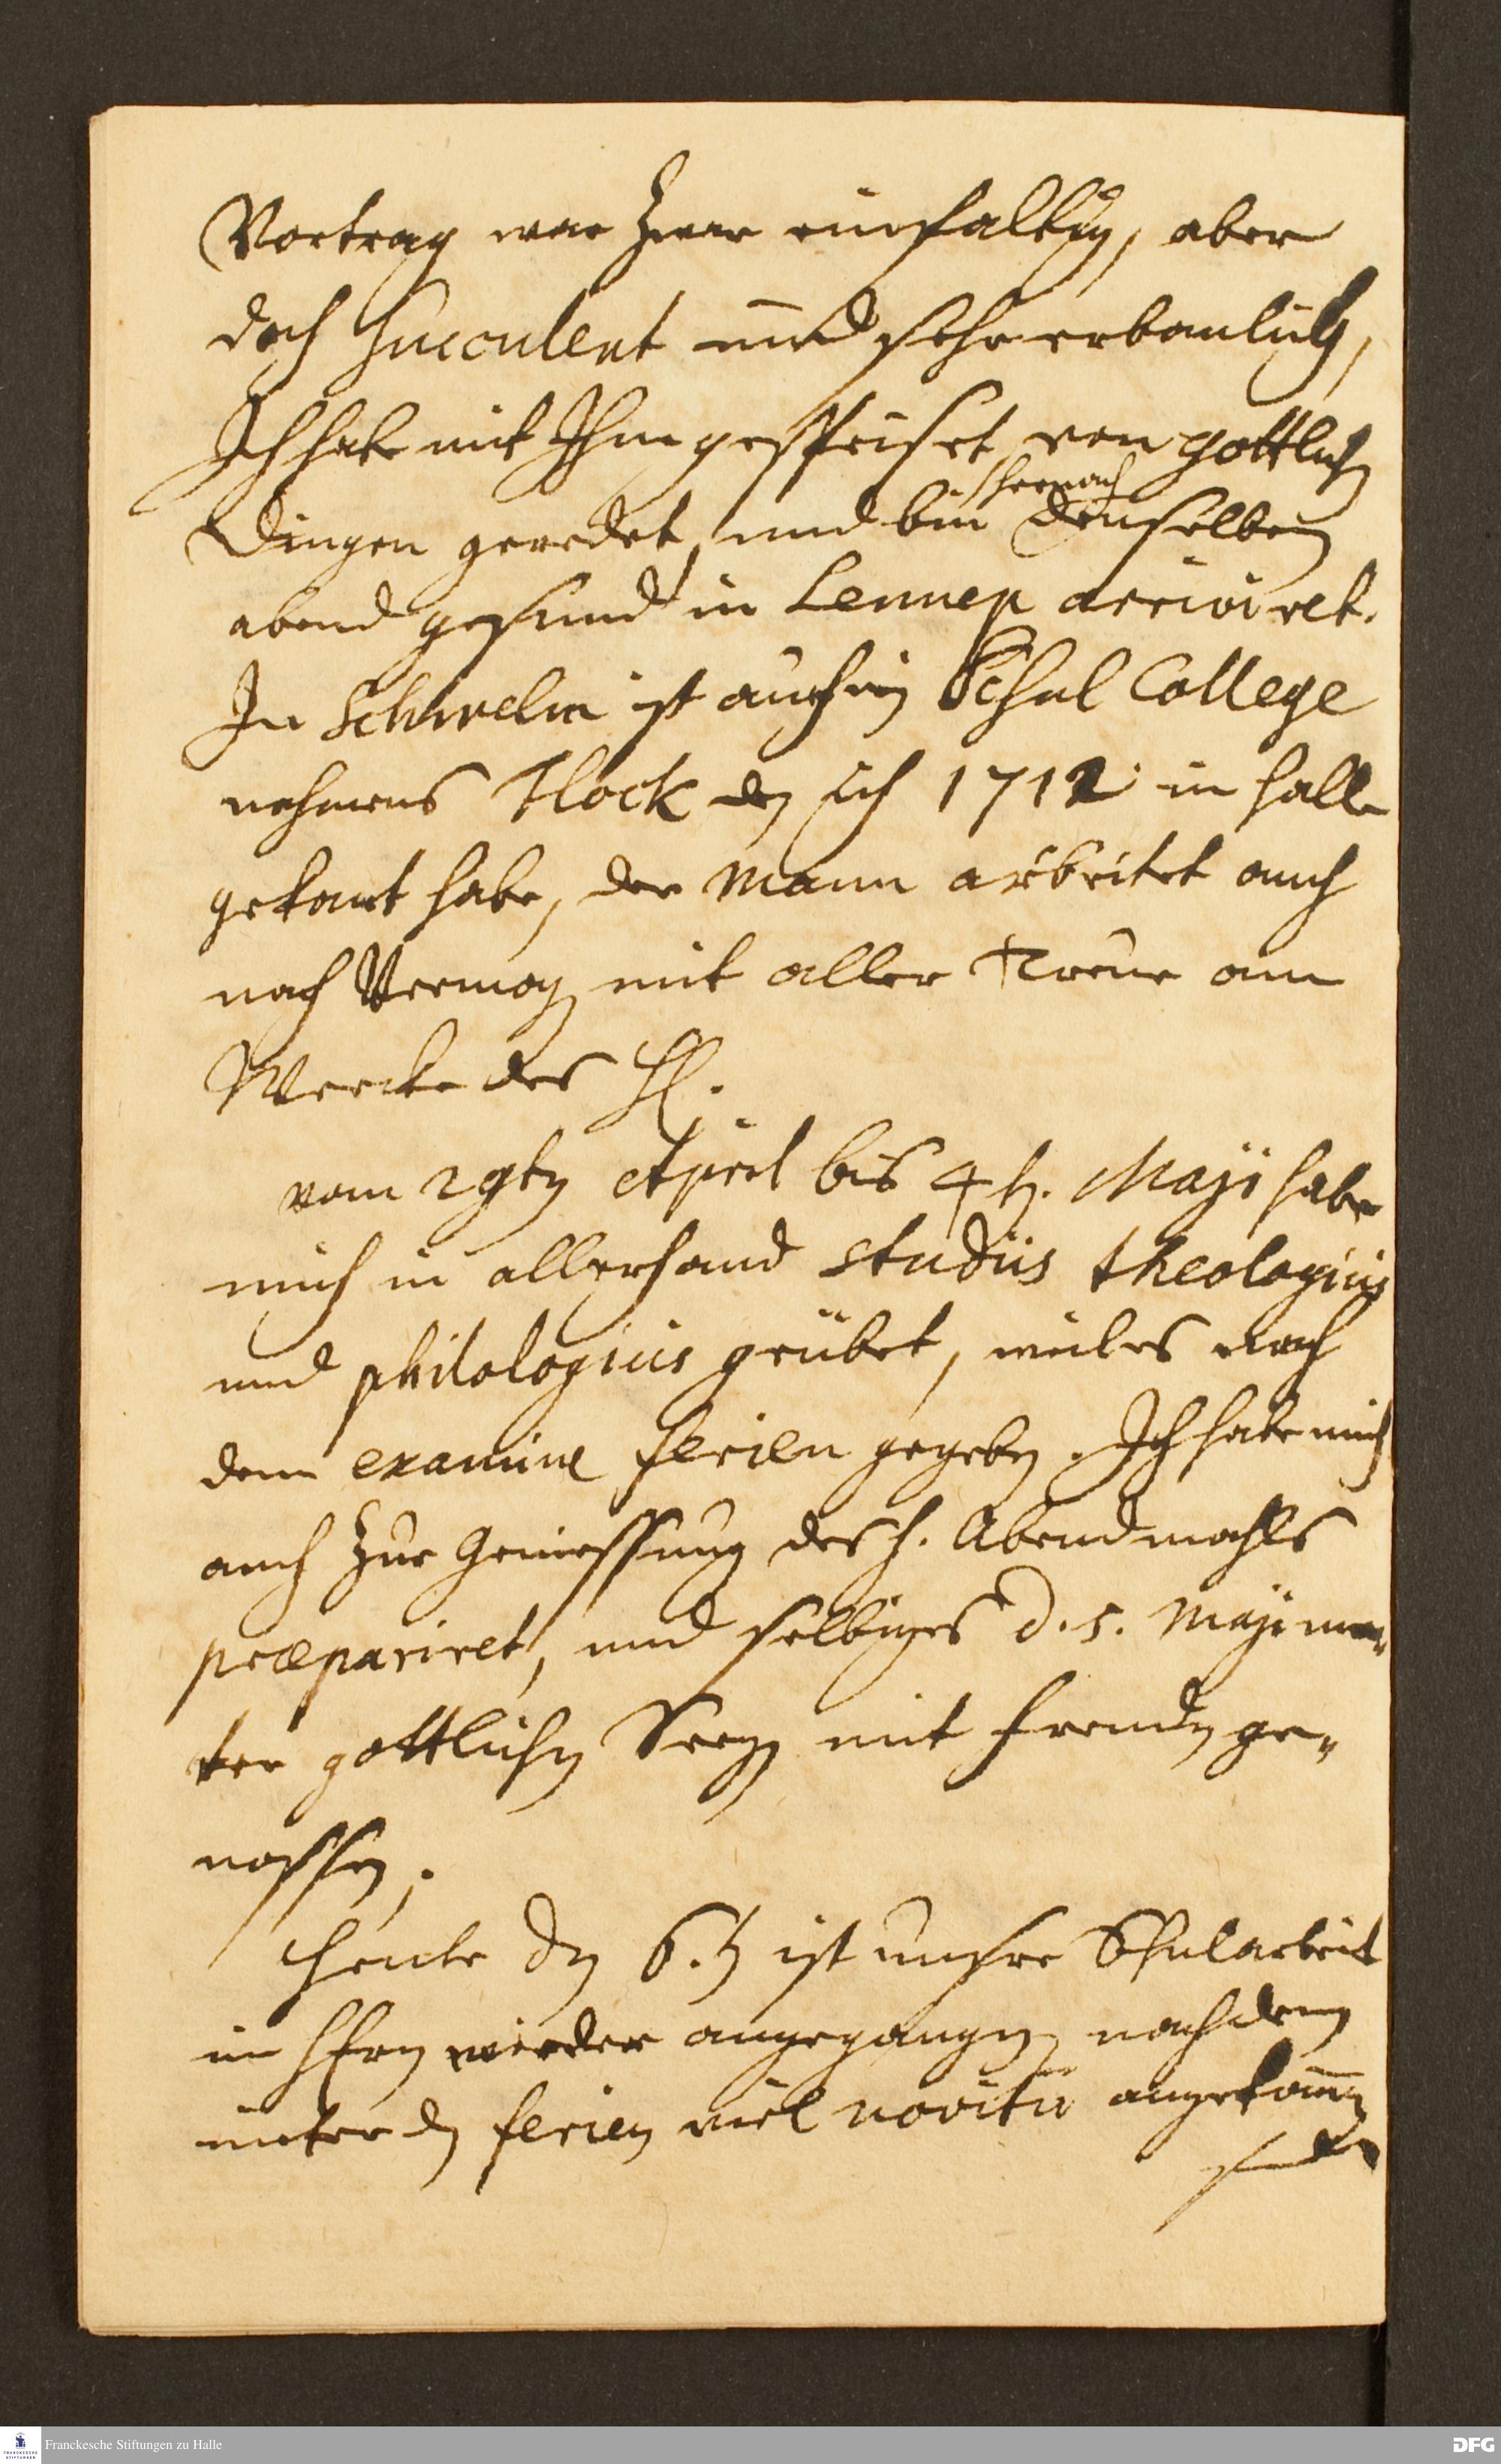 Vortrag war zwar einfaltig, aber
doch succulent und sehr erbaulich,
Ich habe mit Ihm gespeiset, von gottlichen
hernach
Dingen geredet, und bin denselben
abend gesund in Lennep arriviret.
In Schwelm ist auch ein Schul College
nahmens Flock den ich 1712 in Halle
gekant habe, der Mann arbeitet auch
nach Vermogen mit aller Treue am
Wercke des H.
vom 29ten April bis 4ten. Maji habe
mich in allerhand studiis theologicis
und philologicis geübet, weil es nach
dem examine ferien gegeben. Ich habe mich
auch zur Geniessung des H. Abendmahls
præpariret, und selbiges d. 5. Maji un¬
ter gottlichen Seegen mit Freuden ge¬
nossen.
Heute den 6.ten ist unsre Schularbeit
im HErrn wieder angegangen, nachdem
unter den ferien viel novitii angekommen
Franckesche Stiftungen zu Halle
DFG